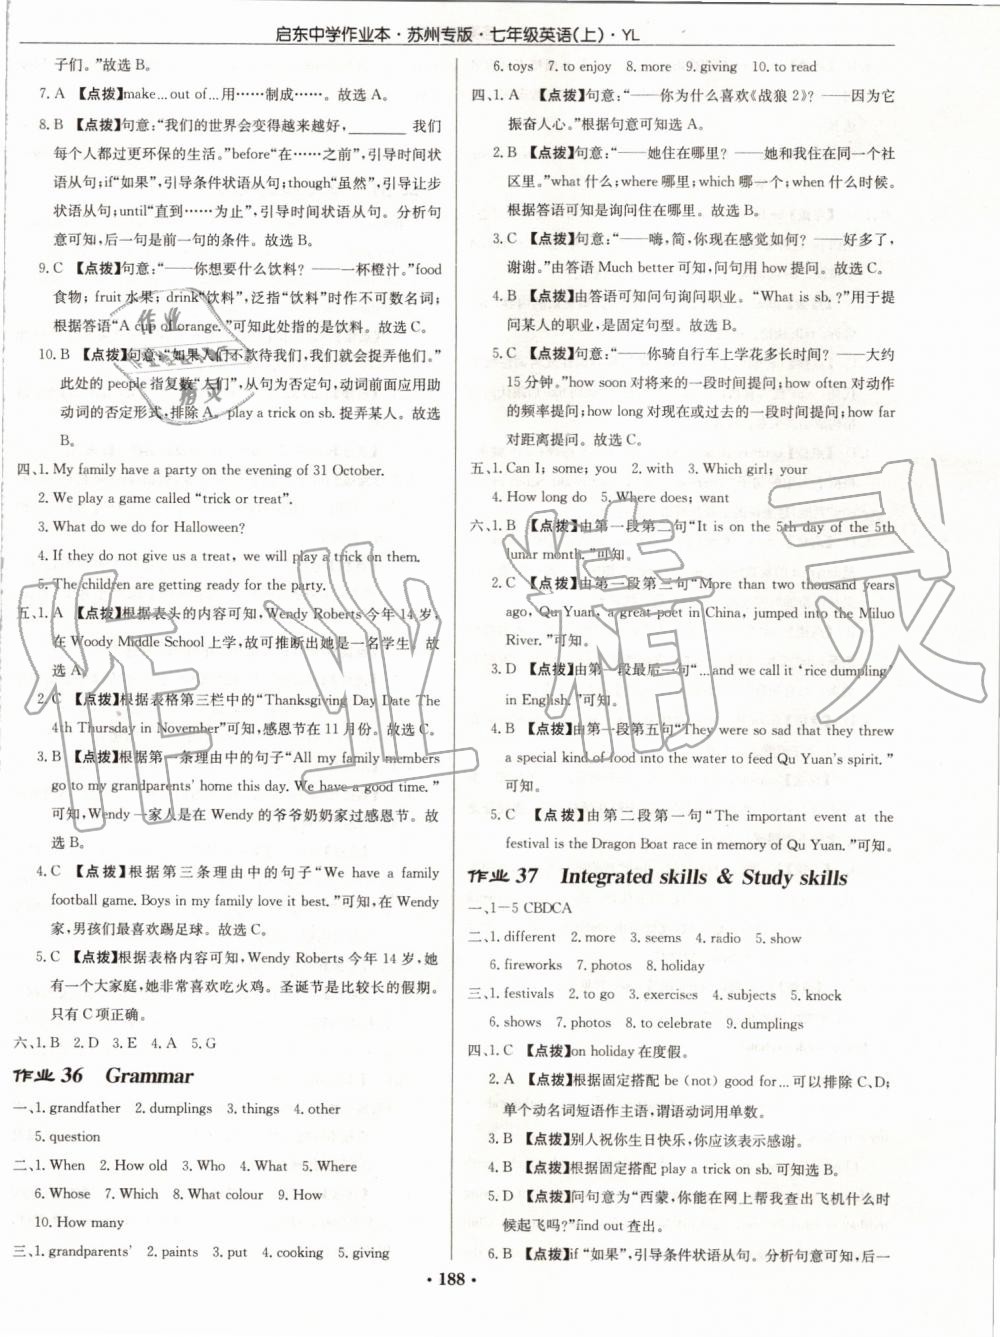 启东中学作业本·苏州专版·七年级英语(上)·YL
子们。”故选 B。
7. A 【点拨】make...out of...用……制成……。故选 A。
8. B 【点拨】句意:“我们的世界会变得越来越好,________ 我们
每个人都过更环保的生活。”before“在……之前”,引导时间状
语从句;if“如果”,引导条件状语从句;though“虽然”,引导让步
状语从句;until“直到……为止”,引导时间状语从句。分析句
意可知,后一句是前一句的条件。故选 B。
9. C 【点拨】句意:“——你想要什么饮料? ——一杯橙汁。”food
食物; fruit 水果; drink“饮料”,泛指“饮料”时作不可数名词;
根据答语“A cup of orange. ”可知此处指的是饮料。故选 C。
10. B 【点拨】句意:“如果人们不款待我们,我们就会捉弄他们。”
此处的 people 指复数“人们”,从句为否定句,动词前面应用助
动词的否定形式,排除 A。play a trick on sb. 捉弄某人。故选
B。
四、1. My family have a party on the evening of 31 October.
2. We play a game called “trick or treat”.
3. What do we do for Halloween?
4. If they do not give us a treat, we will play a trick on them.
5. The children are getting ready for the party.
五、1. A 【点拨】根据表头的内容可知, Wendy Roberts 今年 14 岁,
在 Woody Middle School 上学,故可推断出她是一名学生。故
选 A。
2. C 【点拨】根据表格第三栏中的“Thanksgiving Day Date The
4th Thursday in November”可知,感恩节在 11 月份。故选 C。
3. B 【点拨】根据第一条理由中的句子“All my family members
go to my grandparents’ home this day. We have a good time. ”
可知, Wendy 一家人是在 Wendy 的爷爷奶奶家过感恩节。故
选 B。
4. C 【点拨】根据第三条理由中的句子“We have a family
football game. Boys in my family love it best. ”可知,在 Wendy
家,男孩们最喜欢踢足球。故选 C。
5. C 【点拨】根据表格内容可知, Wendy Roberts 今年 14 岁,她
有一个大家庭,她非常喜欢吃火鸡。圣诞节是比较长的假期。
只有 C 项正确。
六、1. B 2. D 3. E 4. A 5. G
作业 36 Grammar
一、1. grandfather 2. dumplings 3. things 4. other
5. question
二、1. When 2. How old 3. Who 4. What 5. Where
6. Whose 7. Which 8. What colour 9. How
10. How many
三、1. grandparents’ 2. paints 3. put 4. cooking 5. giving
6. toys 7. to enjoy 8. more 9. giving 10. to read
四、1. A 【点拨】句意:“——你为什么喜欢《战狼 2》? ——因为它
振奋人心。”根据句意可知选 A。
2. B 【点拨】句意:“——她住在哪里? ——她和我住在同一个社
区里。”what 什么; where 哪里; which 哪一个; when 什么时候。
根据答语可知是询问住在哪里。故选 B。
3. C 【点拨】句意:“——嗨,简,你现在感觉如何? ——好多了,
谢谢。”由答语 Much better 可知,问句用 how 提问。故选 C。
4. B 【点拨】由答语可知问句询问职业。“What is sb. ?”用于提
问某人的职业,是固定句型。故选 B。
5. C 【点拨】句意:“——你骑自行车上学花多长时间? ——大约
15 分钟。”how soon 对将来的一段时间提问; how often 对动作
的频率提问; how long 对现在或过去的一段时间提问; how far
对距离提问。故选 C。
五、1. Can I; some; you 2. with 3. Which girl; your
4. How long do 5. Where does; want
六、1. B 【点拨】由第一段第二句“It is on the 5th day of the 5th
lunar month. ”可知。
2. C 【点拨】由第一段第三句“More than two thousand years
ago, Qu Yuan, a great poet in China, jumped into the Miluo
River. ”可知。
3. D 【点拨】由第一段最后一句“...and we call it ‘rice dumpling’
in English. ”可知。
4. B 【点拨】由第一段第五句“They were so sad that they threw
a special kind of food into the water to feed Qu Yuan’s spirit. ”
可知。
5. C 【点拨】由第二段第一句“The important event at the
festival is the Dragon Boat race in memory of Qu Yuan. ”可知。
作业 37 Integrated skills & Study skills
一、1－5 CBDCA
二、1. different 2. more 3. seems 4. radio 5. show
6. fireworks 7. photos 8. holiday
三、1. festivals 2. to go 3. exercises 4. subjects 5. knock
6. shows 7. photos 8. to celebrate 9. dumplings
四、1. C 【点拨】on holiday 在度假。
2. A 【点拨】根据固定搭配 be (not) good for...可以排除 C、D;
单个动名词短语作主语,谓语动词用单数。
3. B 【点拨】别人祝你生日快乐,你应该表示感谢。
4. B 【点拨】根据固定搭配 play a trick on sb. 可知选 B。
5. D 【点拨】问句意为“西蒙,你能在网上帮我查出飞机什么时
候起飞吗?”find out 查出。
6. B 【点拨】if “如果”,引导条件状语从句。分析句意可知,后一
· 188 ·
作业精灵